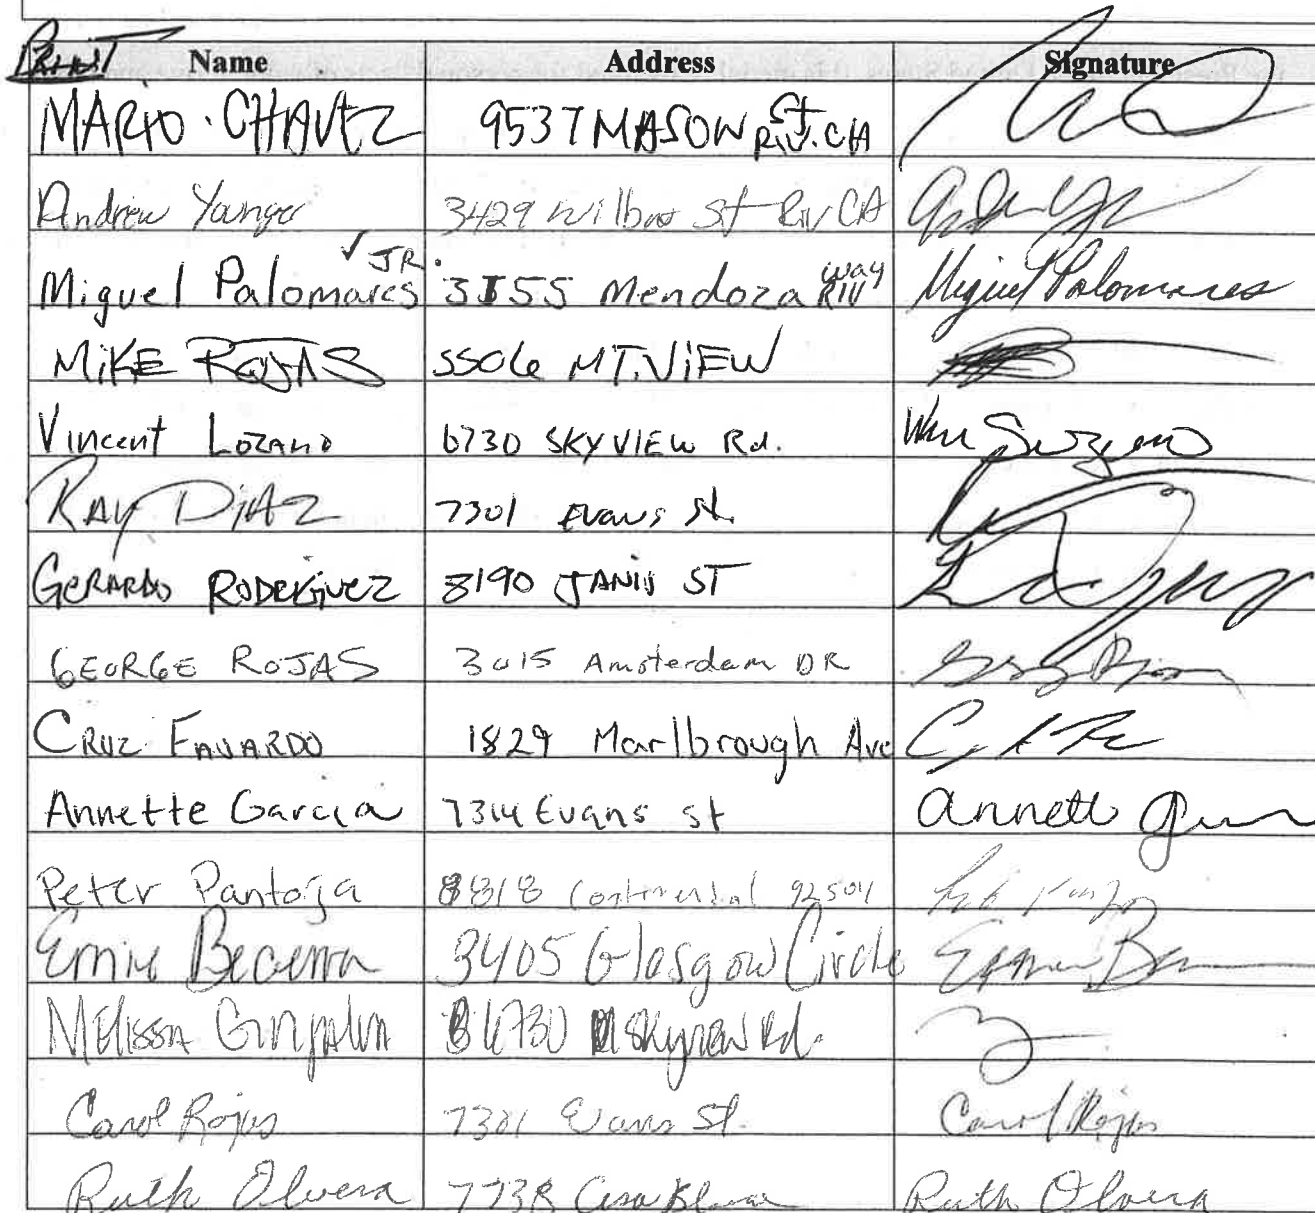 PRINT Name Address Signature
MARIO CHAVEZ 9537 MASON St RIV. CA
Andrew Younger 3429 Wilbur St Riv CA
Miguel Palomares JR. 3155 Mendoza way RIV Miguel Palomares
MIKE ROJAS 5506 MT. VIEW
Vincent Lozano 6730 SKY VIEW Rd.
RAY DIAZ 7301 Evans St.
GERARDO RODRIGUEZ 8190 JANIS ST
GEORGE ROJAS 3015 Amsterdam DR
CRUZ FAVARDO 1829 Marlbrough Ave
Annette Garcia 7314 Evans st Annett
Peter Pantoja 8818 Continental 92504
Ernie Becerra 3405 Glasgow Circle
Melissa 6730 Skyview Rd.
Carol Rojas 7301 Evans St. Carol Rojas
Ruth Olvera 7738 Casa Blanca Ruth Olvera